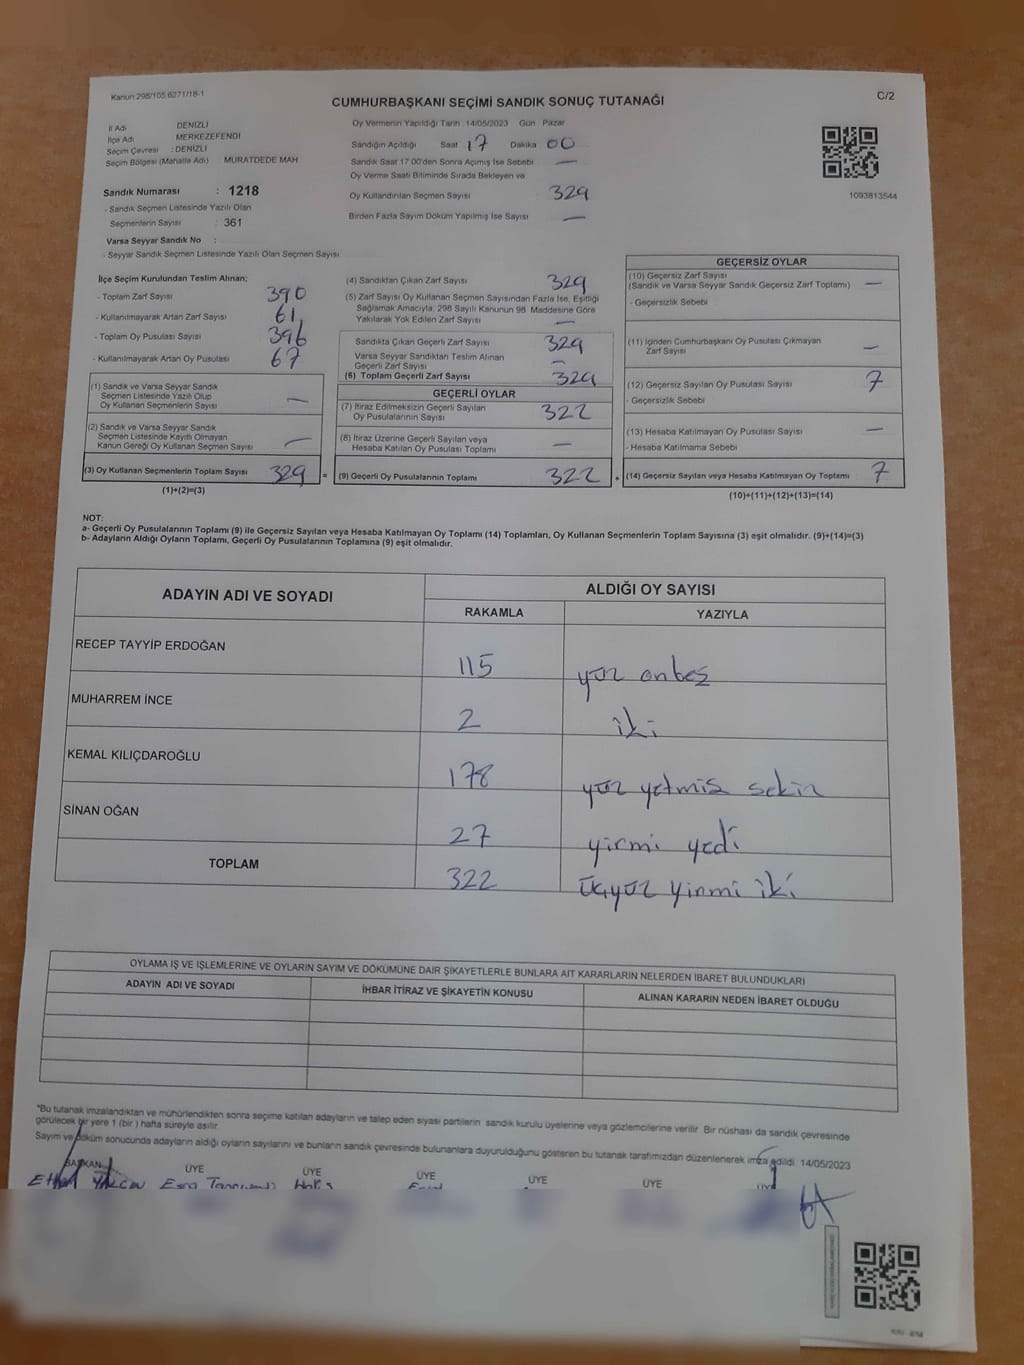 Kanun:298/105.6271/18-1
CUMHURBAŞKANI SEÇİMİ SANDIK SONUÇ TUTANAĞI
C/2
İl Adı DENİZLİ
İlçe Adı MERKEZEFENDİ
Seçim Çevresi : DENİZLİ
Seçim Bölgesi (Mahalle Adı) MURATDEDE MAH
Sandık Numarası : 1218
- Sandık Seçmen Listesinde Yazılı Olan
Seçmenlerin Sayısı : 361
Varsa Seyyar Sandık No :
- Seyyar Sandık Seçmen Listesinde Yazılı Olan Seçmen Sayısı
Oy Vermenin Yapıldığı Tarih 14/05/2023 Gün Pazar
Sandığın Açıldığı Saat 17 Dakika 00
Sandık Saat 17:00'den Sonra Açımış İse Sebebi —
Oy Verme Saati Bitiminde Sırada Bekleyen ve
Oy Kullandırılan Seçmen Sayısı 329
Birden Fazla Sayım Döküm Yapılmış İse Sayısı —
1093813544
İlçe Seçim Kurulundan Teslim Alınan:
- Toplam Zarf Sayısı 390
- Kullanılmayarak Artan Zarf Sayısı 61
- Toplam Oy Pusulası Sayısı 396
- Kullanılmayarak Artan Oy Pusulası 67
(1) Sandık ve Varsa Seyyar Sandık
Seçmen Listesinde Yazılı Olup
Oy Kullanan Seçmenlerin Sayısı —
(2) Sandık ve Varsa Seyyar Sandık
Seçmen Listesinde Kayıtlı Olmayan
Kanun Gereği Oy Kullanan Seçmen Sayısı —
(3) Oy Kullanan Seçmenlerin Toplam Sayısı 329 =
(1)+(2)=(3)
(4) Sandıktan Çıkan Zarf Sayısı 329
(5) Zarf Sayısı Oy Kullanan Seçmen Sayısından Fazla İse, Eşitliği
Sağlamak Amacıyla, 298 Sayılı Kanunun 98. Maddesine Göre
Yakılarak Yok Edilen Zarf Sayısı —
Sandıkta Çıkan Geçerli Zarf Sayısı 329
Varsa Seyyar Sandıktan Teslim Alınan
Geçerli Zarf Sayısı —
(6) Toplam Geçerli Zarf Sayısı 329
GEÇERLİ OYLAR
(7) İtiraz Edilmeksizin Geçerli Sayılan
Oy Pusulalarının Sayısı 322
(8) İtiraz Üzerine Geçerli Sayılan veya
Hesaba Katılan Oy Pusulası Toplamı —
(9) Geçerli Oy Pusulalarının Toplamı 322 +
GEÇERSİZ OYLAR
(10) Geçersiz Zarf Sayısı
(Sandık ve Varsa Seyyar Sandık Geçersiz Zarf Toplamı) —
- Geçersizlik Sebebi
(11) İçinden Cumhurbaşkanı Oy Pusulası Çıkmayan
Zarf Sayısı —
(12) Geçersiz Sayılan Oy Pusulası Sayısı 7
- Geçersizlik Sebebi
(13) Hesaba Katılmayan Oy Pusulası Sayısı —
- Hesaba Katılmama Sebebi
(14) Geçersiz Sayılan veya Hesaba Katılmayan Oy Toplamı 7
(10)+(11)+(12)+(13)=(14)
NOT:
a- Geçerli Oy Pusulalarının Toplamı (9) ile Geçersiz Sayılan veya Hesaba Katılmayan Oy Toplamı (14) Toplamları, Oy Kullanan Seçmenlerin Toplam Sayısına (3) eşit olmalıdır. (9)+(14)=(3)
b- Adayların Aldığı Oyların Toplamı, Geçerli Oy Pusulalarının Toplamına (9) eşit olmalıdır.
ADAYIN ADI VE SOYADI
ALDIĞI OY SAYISI
RAKAMLA YAZIYLA
RECEP TAYYİP ERDOĞAN 115 yüz onbeş
MUHARREM İNCE 2 iki
KEMAL KILIÇDAROĞLU 178 yüz yetmiş sekiz
SİNAN OĞAN 27 yirmi yedi
TOPLAM 322 üçyüz yirmi iki
OYLAMA İŞ VE İŞLEMLERİNE VE OYLARIN SAYIM VE DÖKÜMÜNE DAİR ŞİKAYETLERLE BUNLARA AİT KARARLARIN NELERDEN İBARET BULUNDUKLARI
ADAYIN ADI VE SOYADI İHBAR İTİRAZ VE ŞİKAYETİN KONUSU ALINAN KARARIN NEDEN İBARET OLDUĞU
*Bu tutanak imzalandıktan ve mühürlendikten sonra seçime katılan adayların ve talep eden siyasi partilerin sandık kurulu üyelerine veya gözlemcilerine verilir. Bir nüshası da sandık çevresinde
görülecek bir yere 1 (bir ) hafta süreyle asılır.
Sayım ve döküm sonucunda adayların aldığı oyların sayılarını ve bunların sandık çevresinde bulunanlara duyurulduğunu gösteren bu tutanak tarafımızdan düzenlenerek imza edildi. 14/05/2023
BAŞKAN ÜYE ÜYE ÜYE ÜYE ÜYE ÜYE